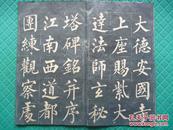 大德安國寺
上座賜紫大
達法師玄秘
塔碑銘并序
江南西道都
團練觀察處